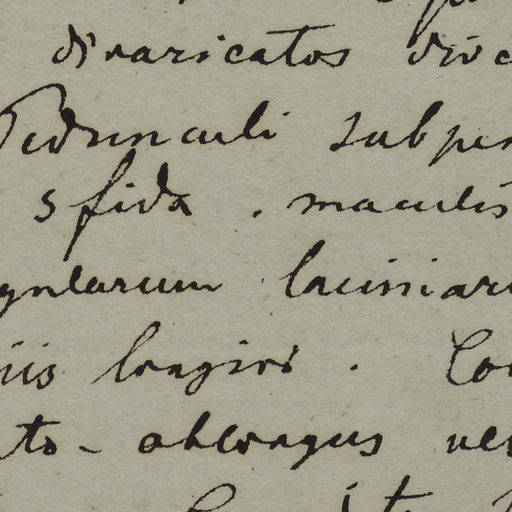 divaricatos divc
Pedunculi subpen
5fida . maculis
gularum laciniaru
iis longior . Co
to - oblongus ver